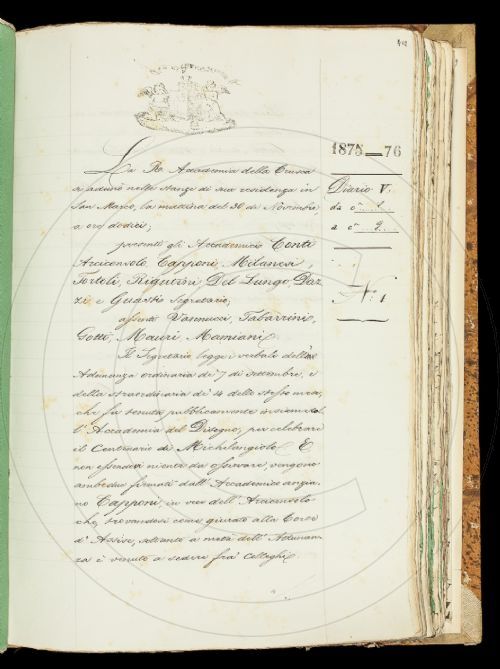 1875—76
La R. Accademia della Crusca
si adunò nelle stanze di sua residenza in
San Marco, la mattina del 30 di Novembre,
a ore dodici;
presenti gli Accademici Conti
Arciconsolo, Capponi, Milanesi,
Tortoli, Rigutini, Del Lungo, Paz-
zi e Guasti Segretario;
assenti Vannucci, Tabarrini,
Gotti, Mauri, Mamiani.
Il Segretario legge i verbali dell'
Adunanza ordinaria de' 7 di settembre, e
della straordinaria de' 14 dello stesso mese,
che fu tenuta pubblicamente insieme col
l'Accademia del Disegno, per celebrare
il Centenario di Michelangiolo. E
non essendovi niente da osservare, vengono
ambedue firmati dall'Accademico anzia-
no Capponi, in vece dell'Arciconsolo
che, trovandosi come giurato alla Corte
d'Assise, soltanto a metà dell'Adunan-
za è venuto a sedere fra' Colleghi.
Diario V.
da c. 1.
a c. 2.
N: 1